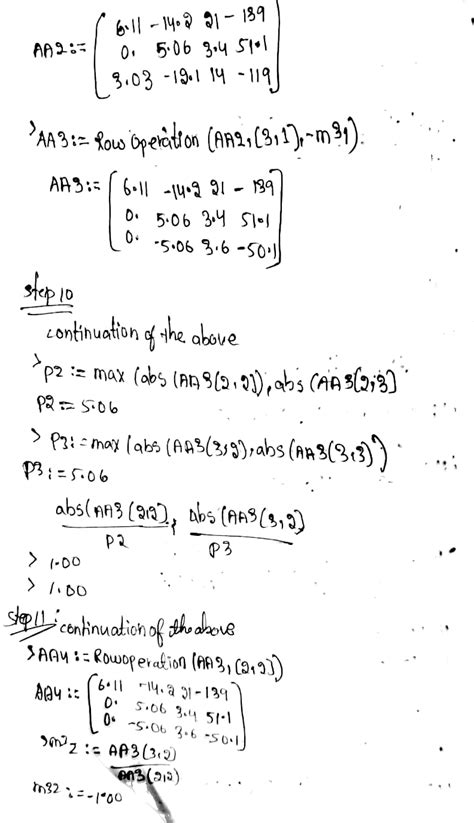 6.11 -14.2 21 -139
AA2:= 0. 5.06 3.4 51.1
3.03 -12.1 14 -119
> AA3:= Row operation (AA2, (3,1), -m31)
AA3:= 6.11 -14.2 21 -139
0. 5.06 3.4 51.1
0. -5.06 3.6 -50.1
step 10
continuation of the above
> p2 := max (abs (AA3(2,2)), abs (AA3(2,3)
P2:= 5.06
> P3:= max (abs (AA3(3,2), abs (AA3(3,3))
P3:= 5.06
abs(AA3(2,2), Abs (AA3(3,2)
P2 P3
> 1.00
> 1.00
step 11: continuation of the above
> AA4:= Rowoperation (AA3, (2,2))
AA4:= 6.11 -14.2 21 -139
0. 5.06 3.4 51.1
0. -5.06 3.6 -50.1
> m32 := AA3(3,2)
AA3(2,2)
m32 := -1.00